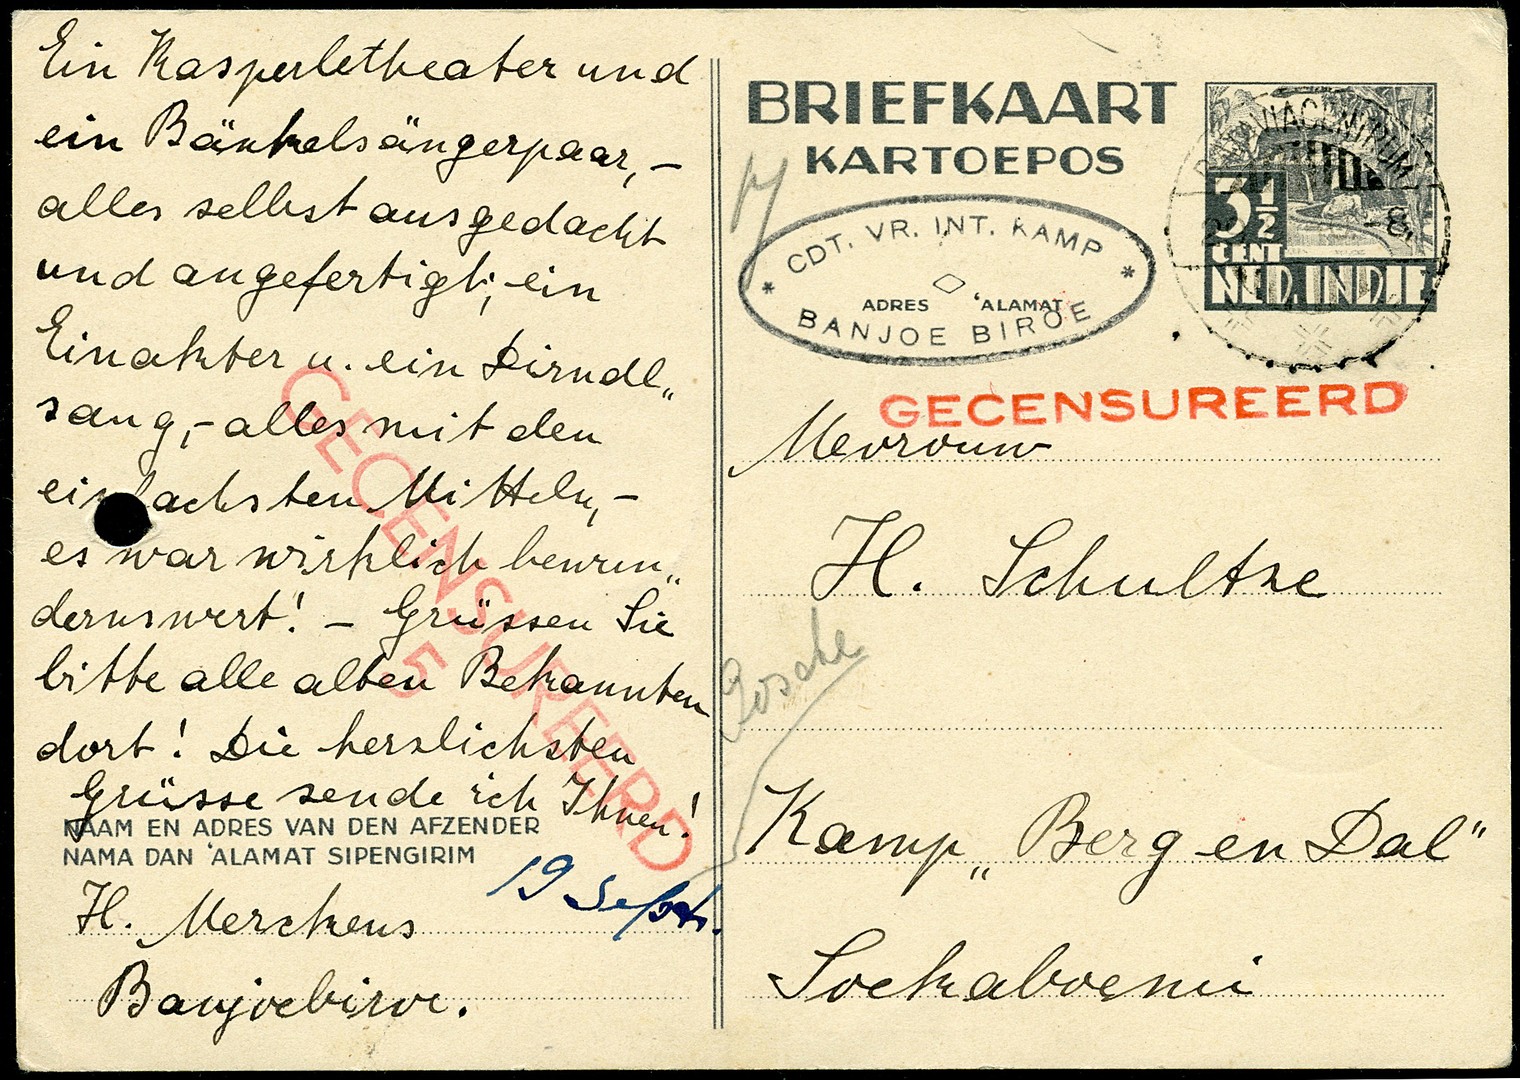 Ein Kasperletheater und
ein Bänkelsängerpaar, –
alles selbst ausgedacht
und angefertigt; ein
Einakter u. ein Dirndl„
sang, – alles mit den
einfachsten Mitteln, –
es war wirklich bewun„
dernswert! – Grüssen Sie
bitte alle alten Bekannten
dort! Die herzlichsten
Grüsse sende ich Ihnen!
NAAM EN ADRES VAN DEN AFZENDER
NAMA DAN 'ALAMAT SIPENGIRIM
19 Sept.
H. Merckens
Banjoebiroe.
GECENSUREERD
5
BRIEFKAART
KARTOEPOS
CDT. VR. INT. KAMP
ADRES 'ALAMAT
BANJOE BIROE
BATAVIACENTRUM
3 1/2
CENT
NED. INDIE
GECENSUREERD
Mevrouw
H. Schultze
Kamp „Berg en Dal"
Soekaboemi